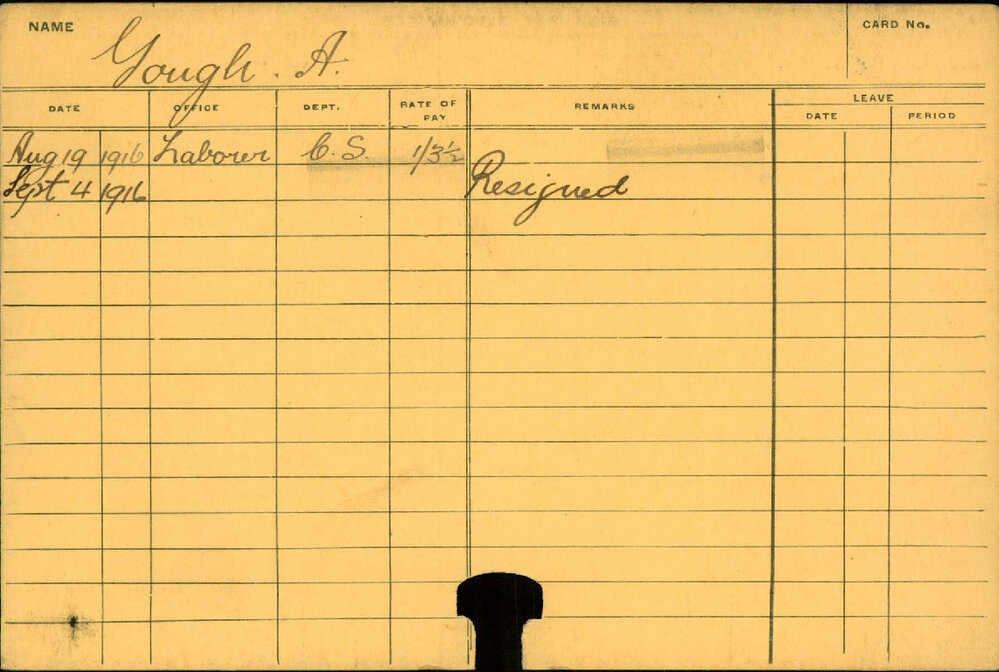 NAME Gough. A. CARD No.
DATE OFFICE DEPT. RATE OF PAY REMARKS LEAVE
DATE PERIOD
Aug 19 1916 Laborer C.S. 1/3½
Sept 4 1916 Resigned